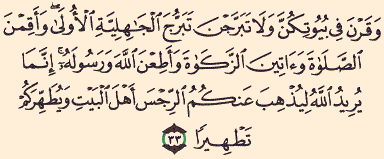 وَقَرْنَ فِى بُيُوتِكُنَّ وَلَا تَبَرَّجْنَ تَبَرُّجَ ٱلْجَٰهِلِيَّةِ ٱلْأُولَىٰ ۖ وَأَقِمْنَ
ٱلصَّلَوٰةَ وَءَاتِينَ ٱلزَّكَوٰةَ وَأَطِعْنَ ٱللَّهَ وَرَسُولَهُۥٓ ۚ إِنَّمَا
يُرِيدُ ٱللَّهُ لِيُذْهِبَ عَنكُمُ ٱلرِّجْسَ أَهْلَ ٱلْبَيْتِ وَيُطَهِّرَكُمْ
تَطْهِيرًا ٣٣